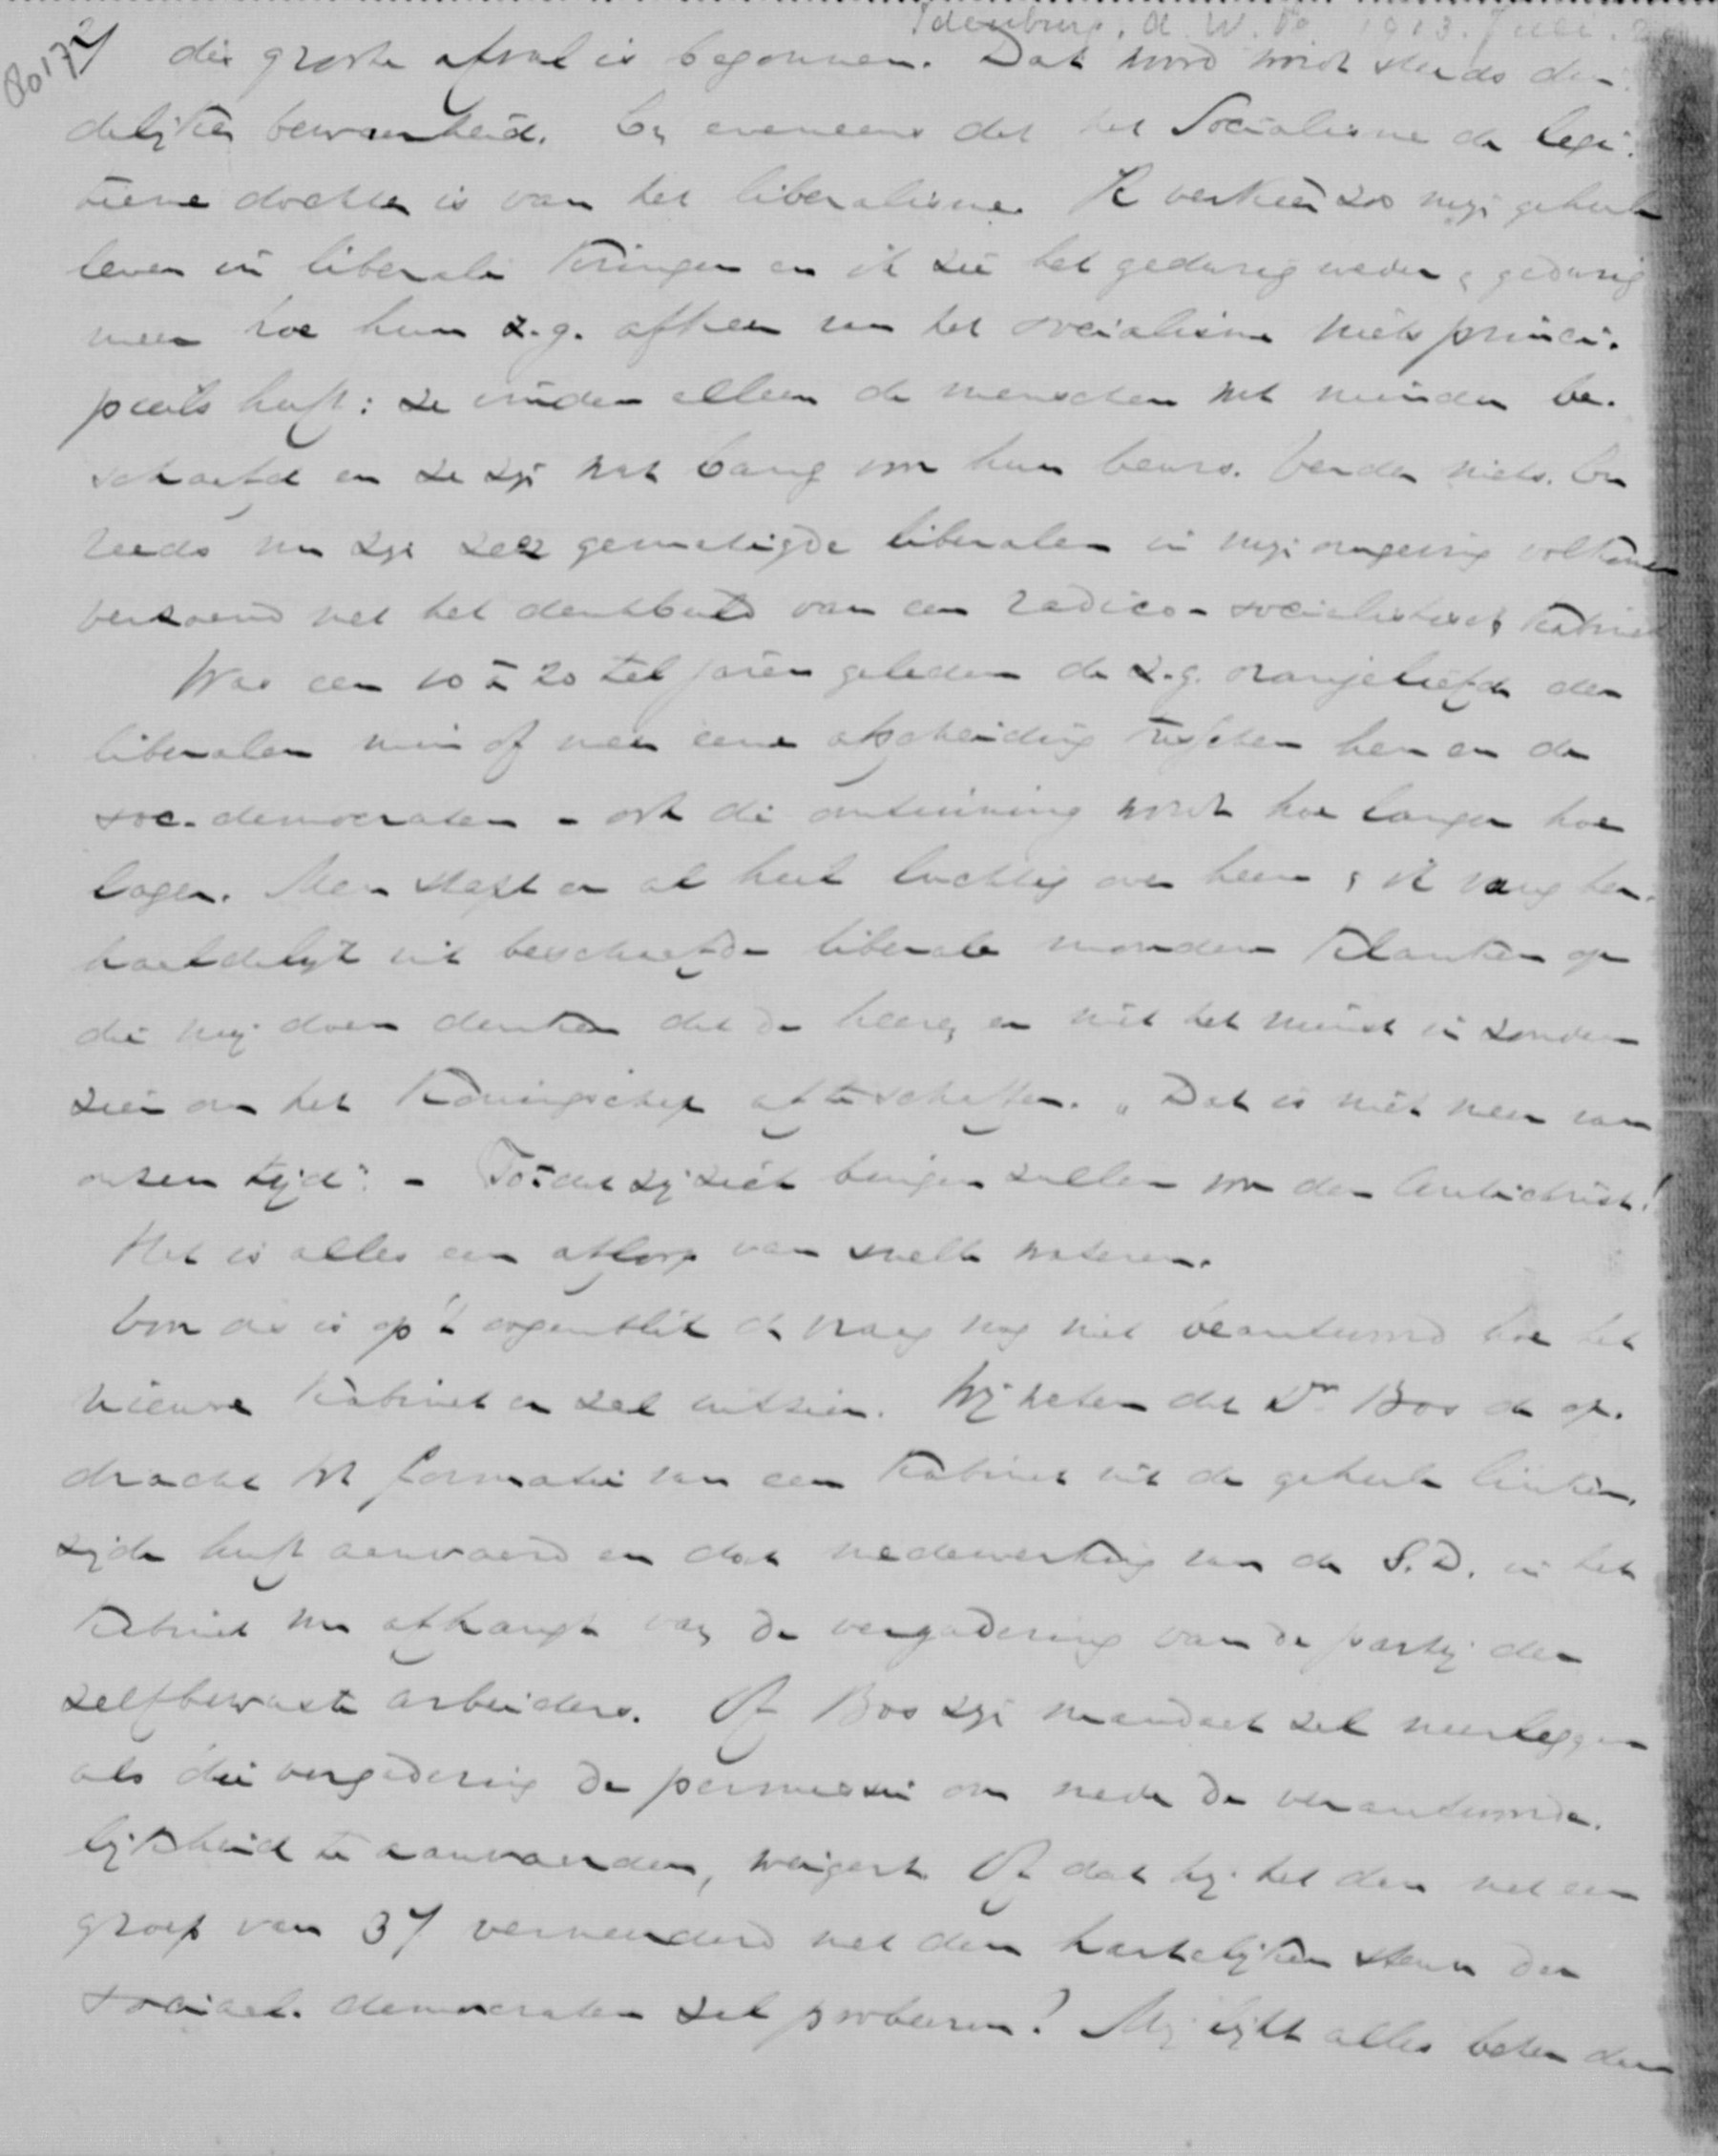 Idenburg, A. W. F. 1913. Juli. 2
8017
2/ die groote afval is begonnen. Dat woord wordt steeds dui-
delijker bewaarheid. En eveneens dat het Socialisme de legi-
tieme dochter is van het liberalisme. Ik verkeer zoo mijn geheele
leven in liberale kringen en ik zie het gedurig weder & gedurig
meer hoe hun z.g. afkeer van het socialisme niets princi-
pieels heeft: ze vinden alleen de menschen wat minder be-
schaafd en ze zijn wat bang voor hun beurs. Verder niets. En
reeds nu zijn zeer gematigde liberalen in mijn omgeving volkomen
verzoend met het denkbeeld van een radico-socialistisch Kabinet
Was een 10 à 20 tal jaren geleden de z.g. oranjeliefde der
liberalen min of meer eene afscheiding tusschen hen en de
soc-democraten - ook die omtuining wordt hoe langer hoe
lager. Men stapt er al heel luchtig over heen & ik vang her-
haaldelijk uit beschaafde liberale monden klanken op
die mij doen denken dat de heeren er niet het minst in zouden
zien om het Koningschap af te schaffen. "Dat is niet meer van
onzen tijd". - Totdat zij zich buigen zullen voor den Antichrist!
Het is alles een afloop van snelle wateren.
Voor ons is op 't oogenblik de vraag nog niet beantwoord hoe het
nieuwe Kabinet er zal uitzien. Wij weten dat Dr. Bos de op-
dracht tot formatie van een Kabinet uit de geheele linker-
zijde heeft aanvaard en dat medewerking van de S.D. in het
Kabinet nu afhangt van de vergadering van de partij der
zelfbewuste arbeiders. Of Bos zijn mandaat zal neerleggen
als die vergadering de permissie om mede de verantwoorde-
lijkheid te aanvaarden, weigert. Of dat hij het dan met een
groep van 37 vermeerderd met den hartelijken steun der
sociaal-democraten zal probeeren? Mij lijkt alles beter dan